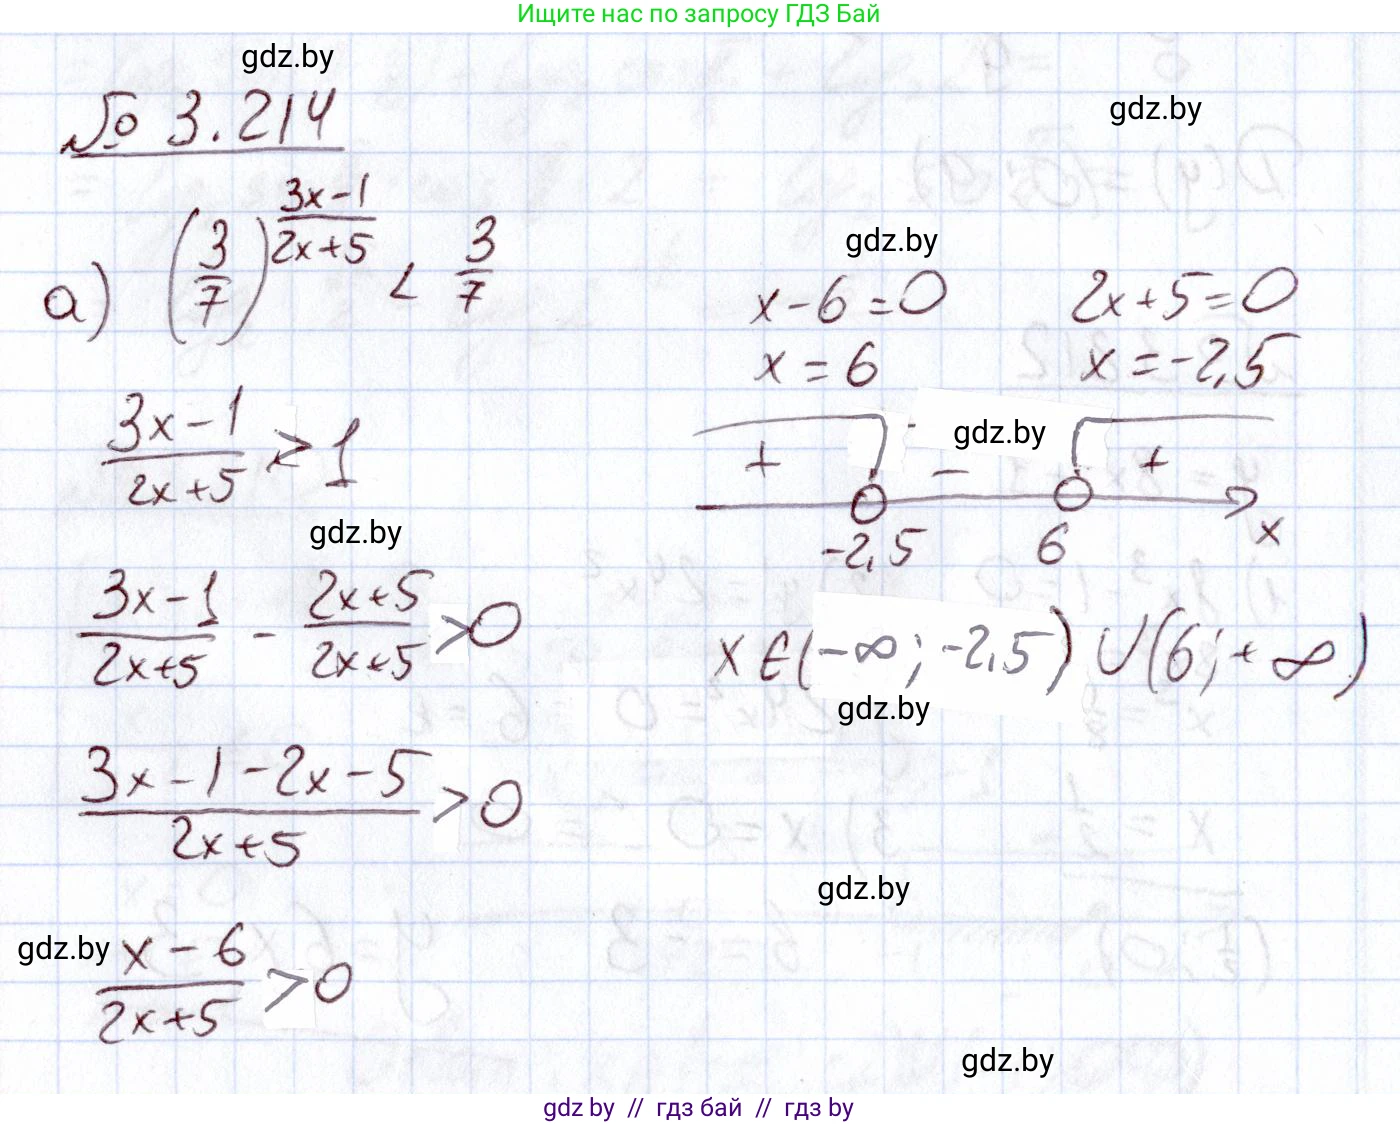 Ищите нас по запросу ГДЗ Бай
gdz.by
gdz.by
№ 3.214
а) (3/7)^((3x-1)/(2x+5)) < 3/7
gdz.by
(3x-1)/(2x+5) > 1
gdz.by
(3x-1)/(2x+5) - (2x+5)/(2x+5) > 0
(3x-1-2x-5)/(2x+5) > 0
gdz.by
(x-6)/(2x+5) > 0
x-6=0 2x+5=0
x=6 x=-2,5
gdz.by
+ - +
-2,5 6 x
x∈(-∞;-2,5)∪(6;+∞)
gdz.by
gdz.by
gdz.by
gdz by // гдз бай // гдз by